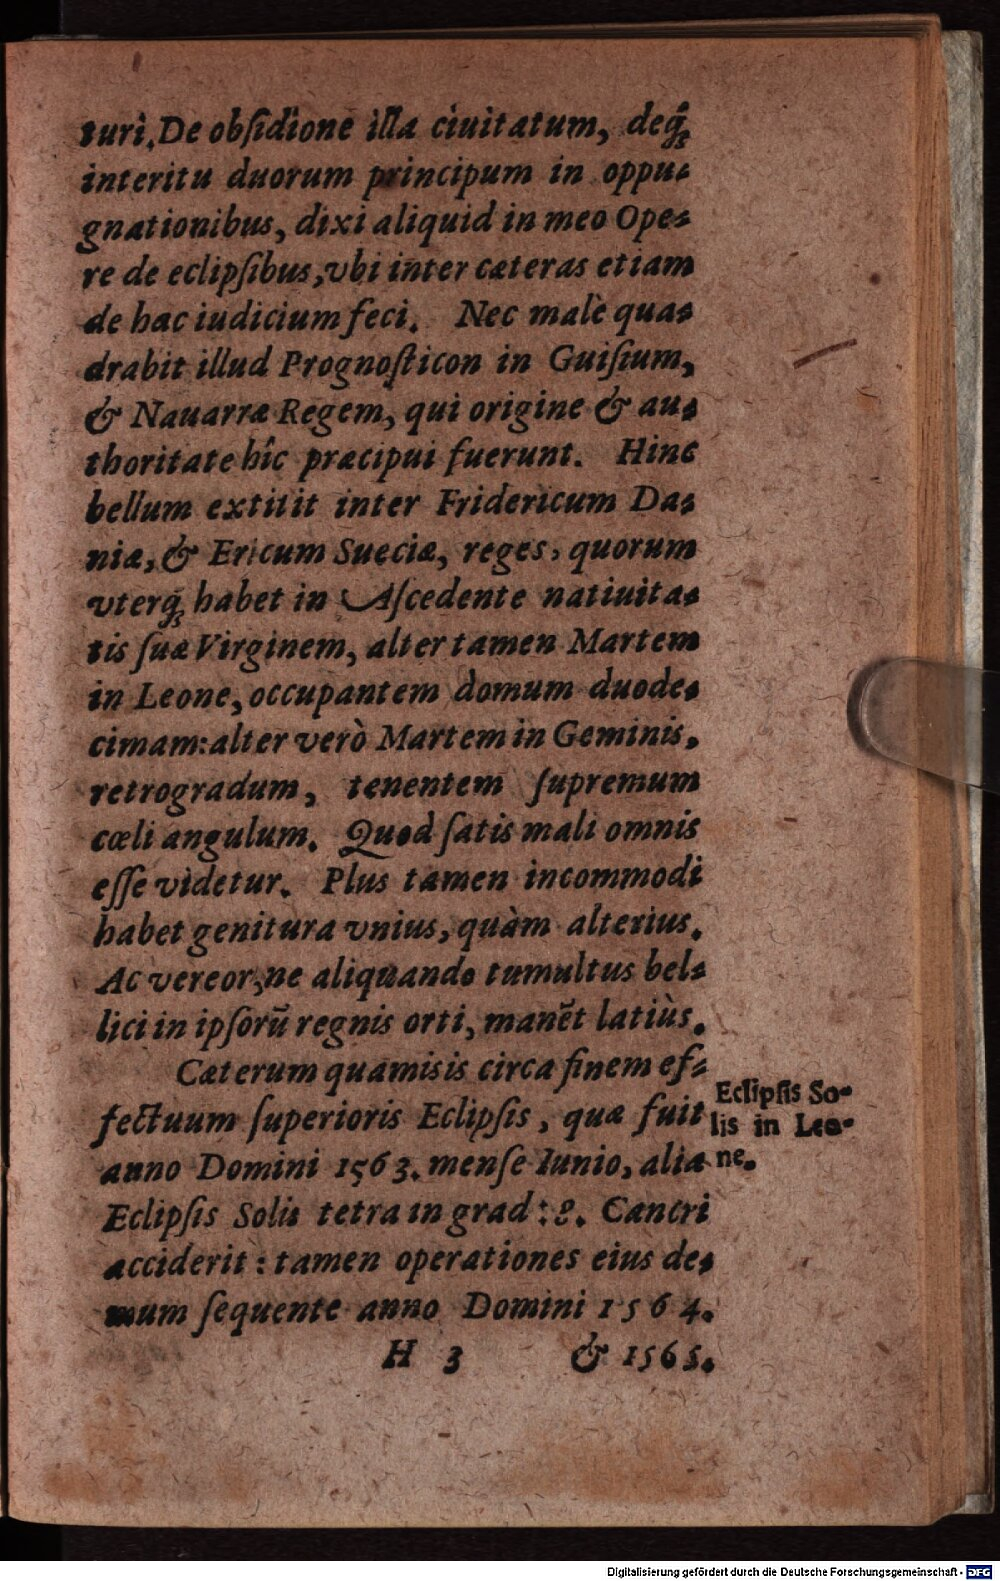 turi. De obsidione illa ciuitatum, deq́;
interitu duorum principum in oppu-
gnationibus, dixi aliquid in meo Ope-
re de eclipsibus, vbi inter cæteras etiam
de hac iudicium feci. Nec malè qua-
drabit illud Prognosticon in Guisium,
& Nauarræ Regem, qui origine & au-
thoritate hîc præcipui fuerunt. Hinc
bellum extitit inter Fridericum Da-
niæ, & Ericum Sueciæ, reges, quorum
vterq́; habet in Ascedente natiuita-
tis suæ Virginem, alter tamen Martem
in Leone, occupantem domum duode-
cimam: alter verò Martem in Geminis,
retrogradum, tenentem supremum
cœli angulum. Quod satis mali omnis
esse videtur. Plus tamen incommodi
habet genitura vnius, quàm alterius.
Ac vereor, ne aliquando tumultus bel-
lici in ipsorũ regnis orti, manẽt latiùs.
Cæterum quamisis circa finem ef-
fectuum superioris Eclipsis, quæ fuit
anno Domini 1563. mense Iunio, alia
Eclipsis Solis tetra in grad: 8. Cancri
acciderit: tamen operationes eius de-
mum sequente anno Domini 1564.
H 3 & 1565.
Eclipsis So-
lis in Leo-
ne.
Digitalisierung gefördert durch die Deutsche Forschungsgemeinschaft - DFG